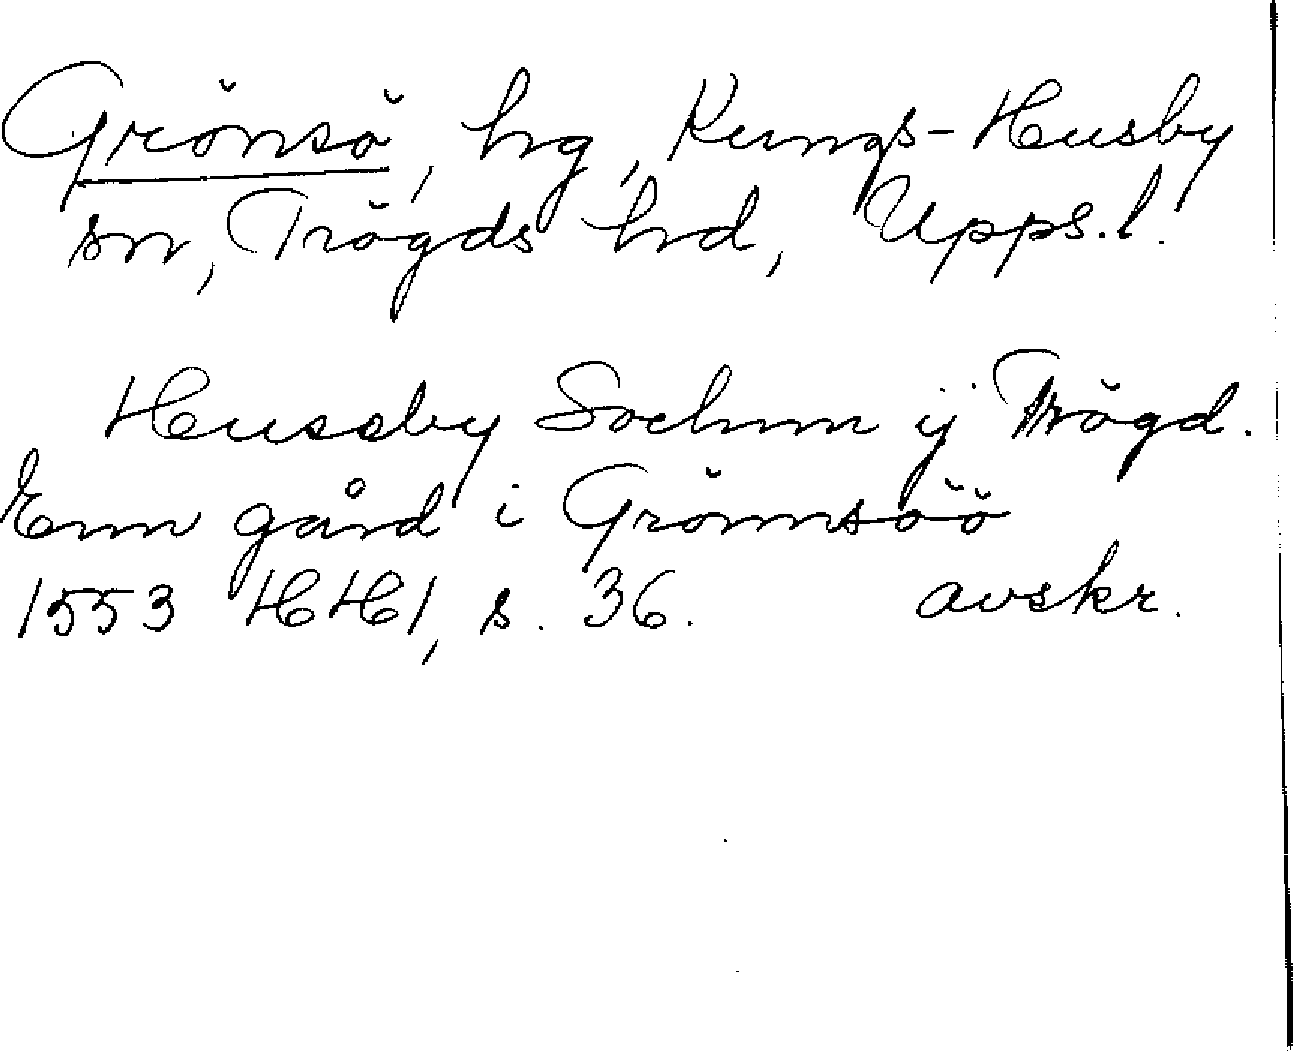 Grönsö, hg, Kungs-Husby
sn, Trögds hd, Upps.l.
Hussby Sochnn ÿ Trögd.
Enn gård i Grönnsöö
1553 HH1, s. 36. avskr.